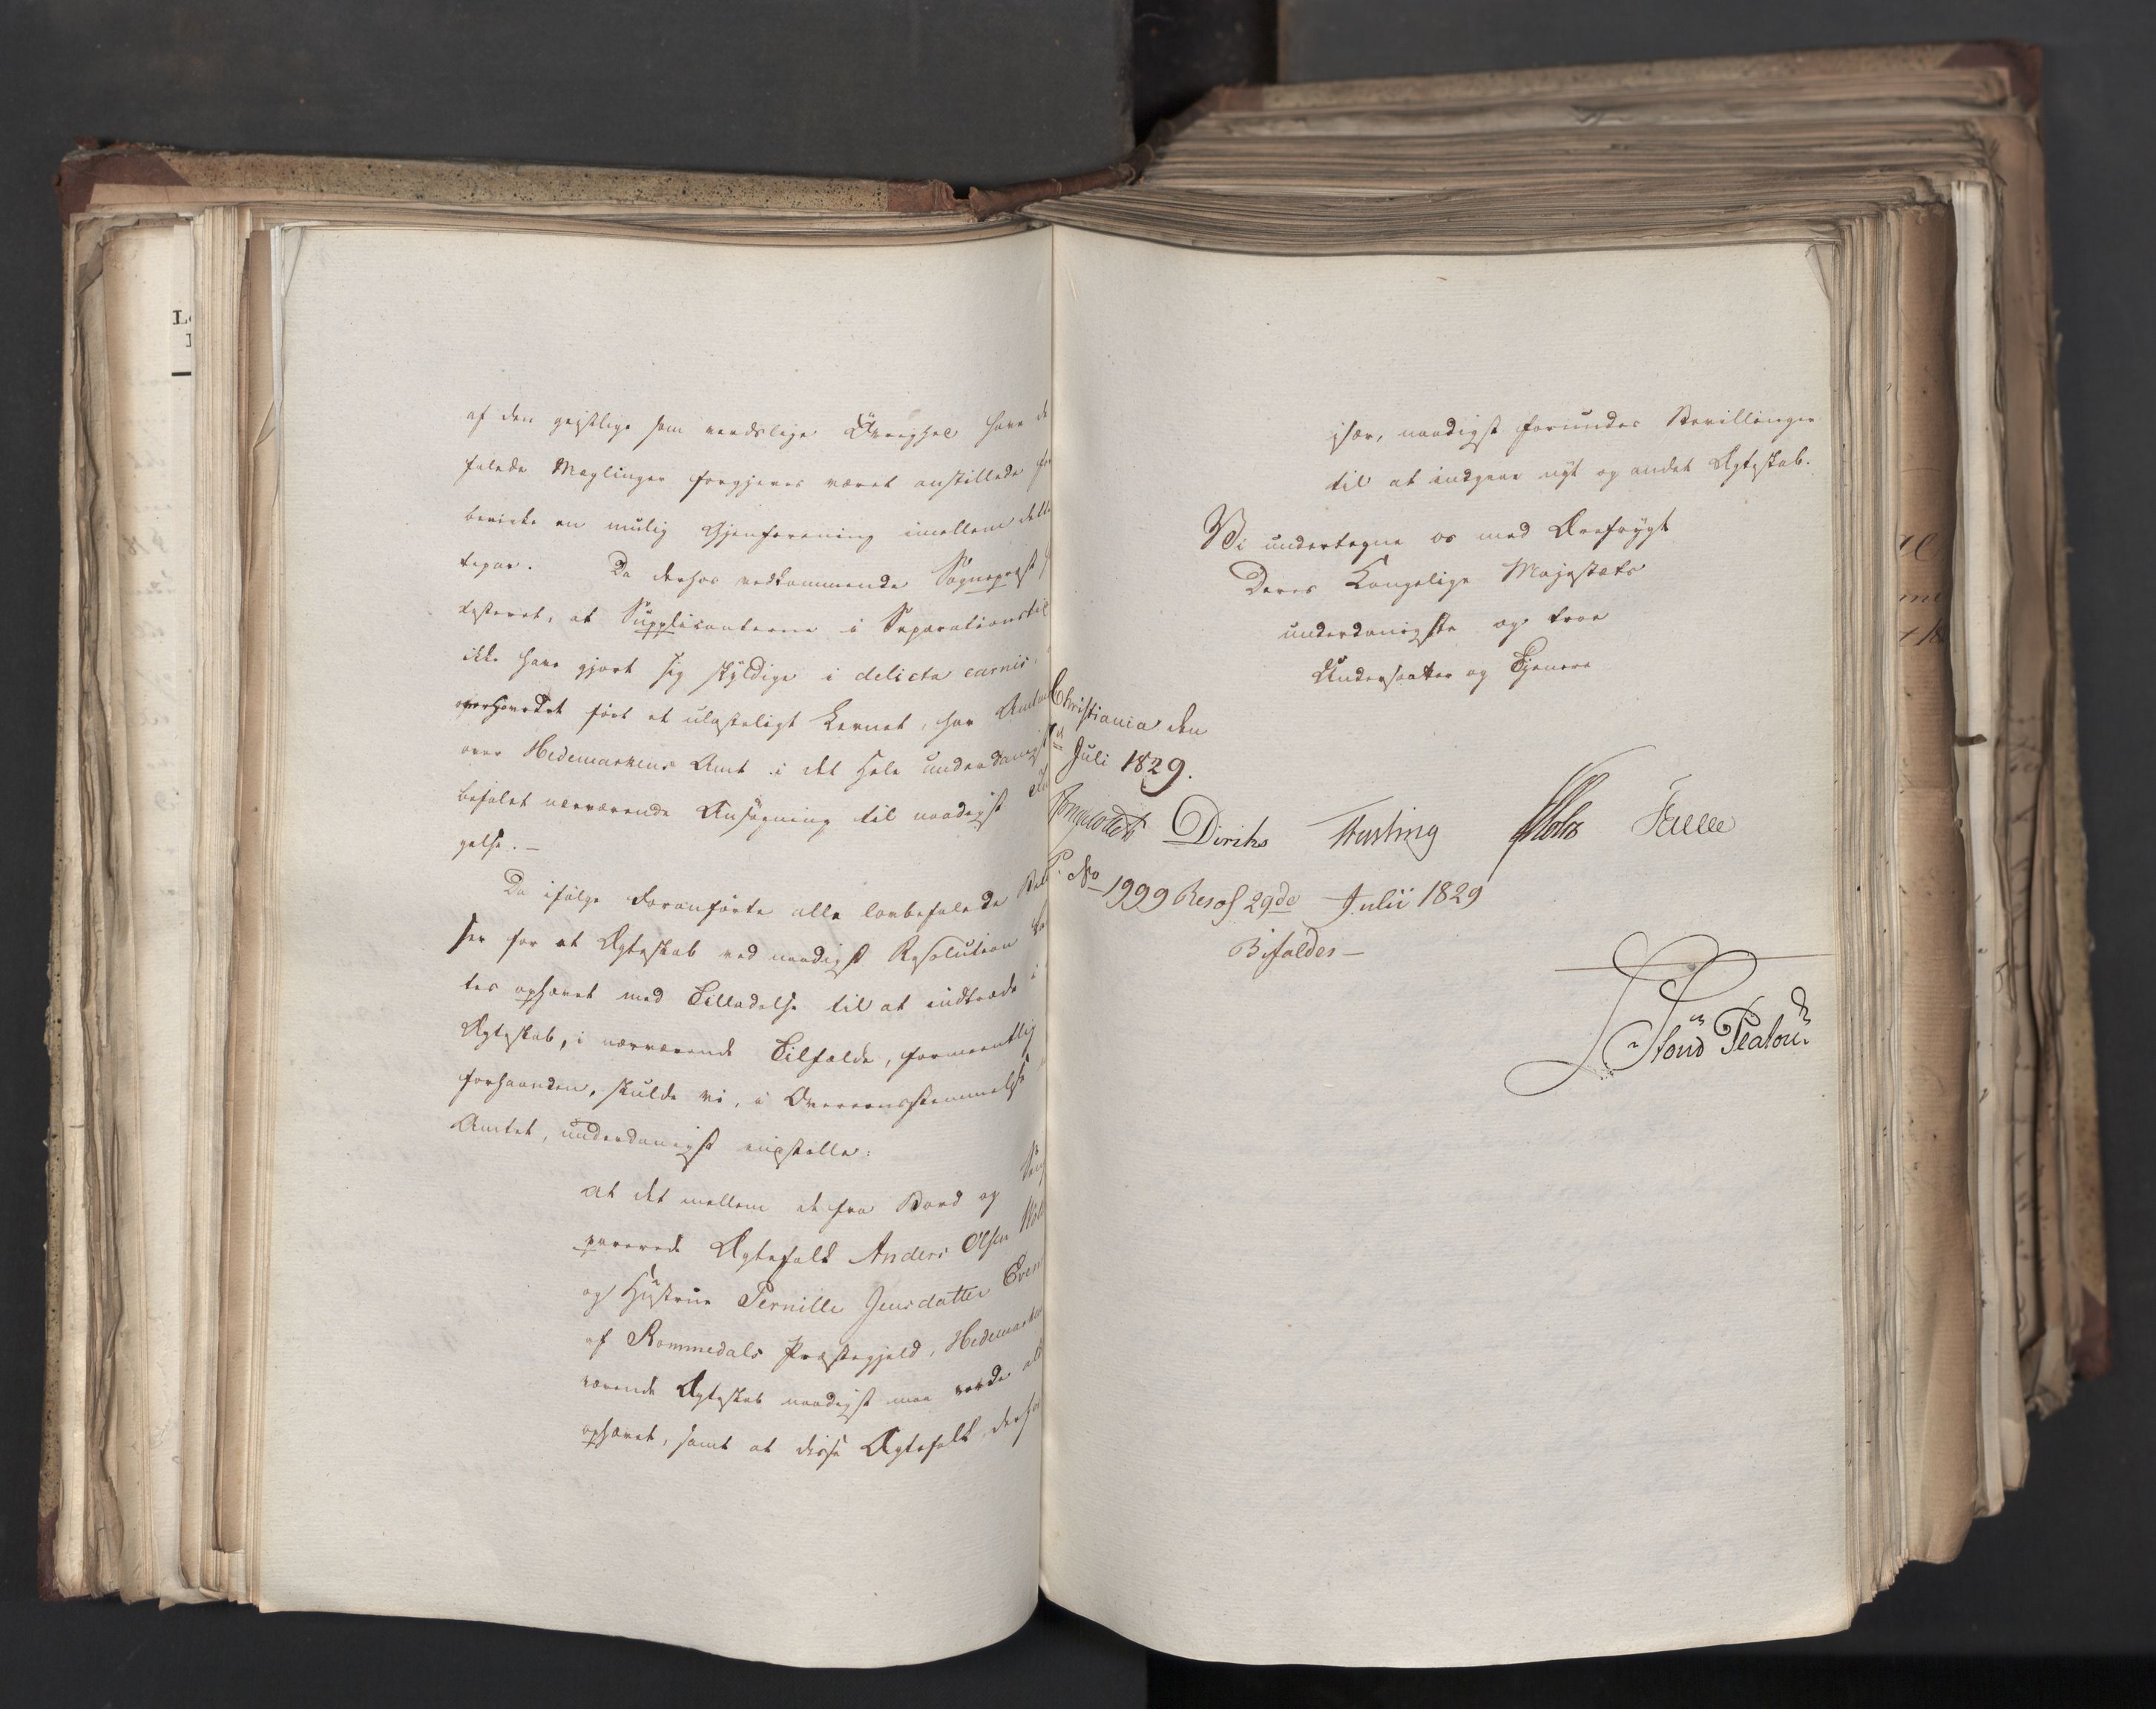 af den geistlige som verdslige Övrighed have
falede Mæglinger forgjeves været anstillede
bevirke en mulig Gjenforening imellem dette
tepar. Da derhos vedkommende Sogneprest
testeret, at Supplicanterne i Separationstid
ikke have gjort sig skyldige i delicta carnis,
overhovedet ført et ulasteligt Levnet, har Amtm
over Hedemarkens Amt i det Hele underdanigst
befalet nærværende Ansøgning til naadigst
gelse. —
Da ifølge Foranførte alle lovbefalede
ser for at Ægteskab ved naadigst Resolution
tes ophævet med Tilladelse til at indtræde i
Ægteskab, i nærværende Tilfælde, formeentlig
forhaanden, skulde vi, i Overeensstemmelse
Amtet, underdanigst indstille:
at det mellem de fra Bord og Seng
parerede Ægtefolk Anders Olsen
og Hustrue Pernille Jensdatter
af Rommedals Præstegjeld, Hedemarken
værende Ægteskab naadigst maa vorde
ophævet, samt at disse Ægtefolk, derhos
især, naadigst forundes Bevillinger
til at indgaae nyt og andet Ægteskab.
Vi undertegne os med Ærefrygt
Deres Kongelige Majestæts
underdanigste og troe
Undersaatter og Tjenere
Christiania den
Juli 1829.
Diriks Fasting Holst
P. No 1999 Resol 29de Julii 1829
Bifaldes —